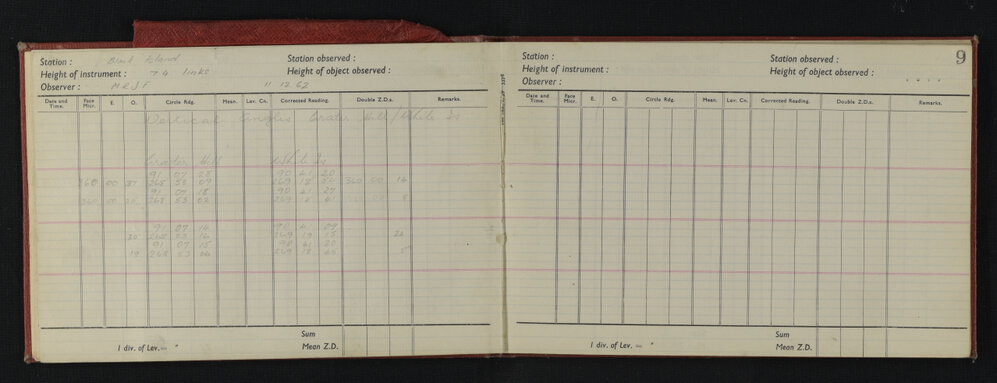 Station : Black Island Station observed :
Height of instrument : 7 9 links Height of object observed :
Observer : MRJF 11 12 62
Date and Time. Face Micr. E. O. Circle Rdg. Mean. Lev. Co. Corrected Reading. Double Z.D.s. Remarks.
Vertical angles Crater Hill / White Is
Crater Hill White Is
91 07 28 90 41 20
360 00 37 268 53 09 269 18 54 360 00 14
91 07 18 90 41 27
360 00 20 268 53 02 269 18 41 8
91 07 14 41 07
30 268 53 16 269 19 15 22
91 07 15 90 41 20
19 268 53 04 269 18 45 5
Sum
1 div. of Lev.= " Mean Z.D.
9
Station : Station observed :
Height of instrument : Height of object observed :
Observer :
Date and Time. Face Micr. E. O. Circle Rdg. Mean. Lev. Co. Corrected Reading. Double Z.D.s. Remarks.
Sum
1 div. of Lev.= " Mean Z.D.